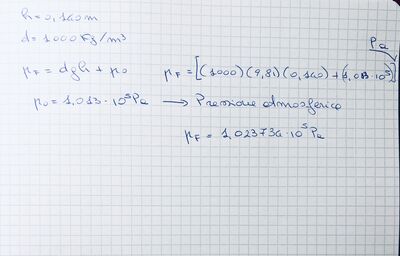 h = 0,140 m
d = 1000 Kg/m³
Pa
p_F = dgh + p₀ p_F = [(1000)(9,81)(0,140) + (1,013 · 10⁵)]
p₀ = 1,013 · 10⁵ Pa → Pressione atmosferica
p_F = 1,023734 · 10⁵ Pa